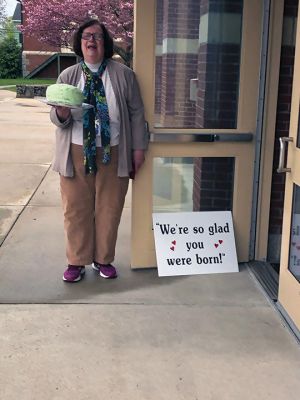 "We're so glad
you
were born!"